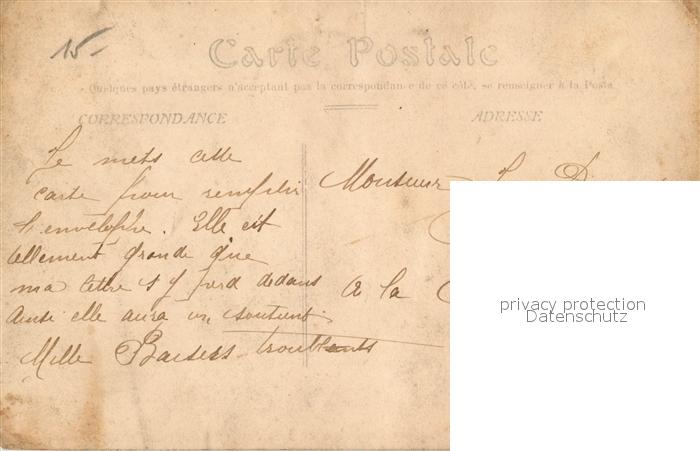 15-
Carte Postale
Quelques pays étrangers n'acceptant pas la correspondance de ce côté, se renseigner à la Poste
CORRESPONDANCE
ADRESSE
Je mets cette
carte pour remplir
l'enveloppe. Elle est
tellement grande que
ma lettre s'y perd dedans
Ainsi elle aura un soutient.
Mille Baisers troublants
Monsieur L. D
à la
privacy protection
Datenschutz